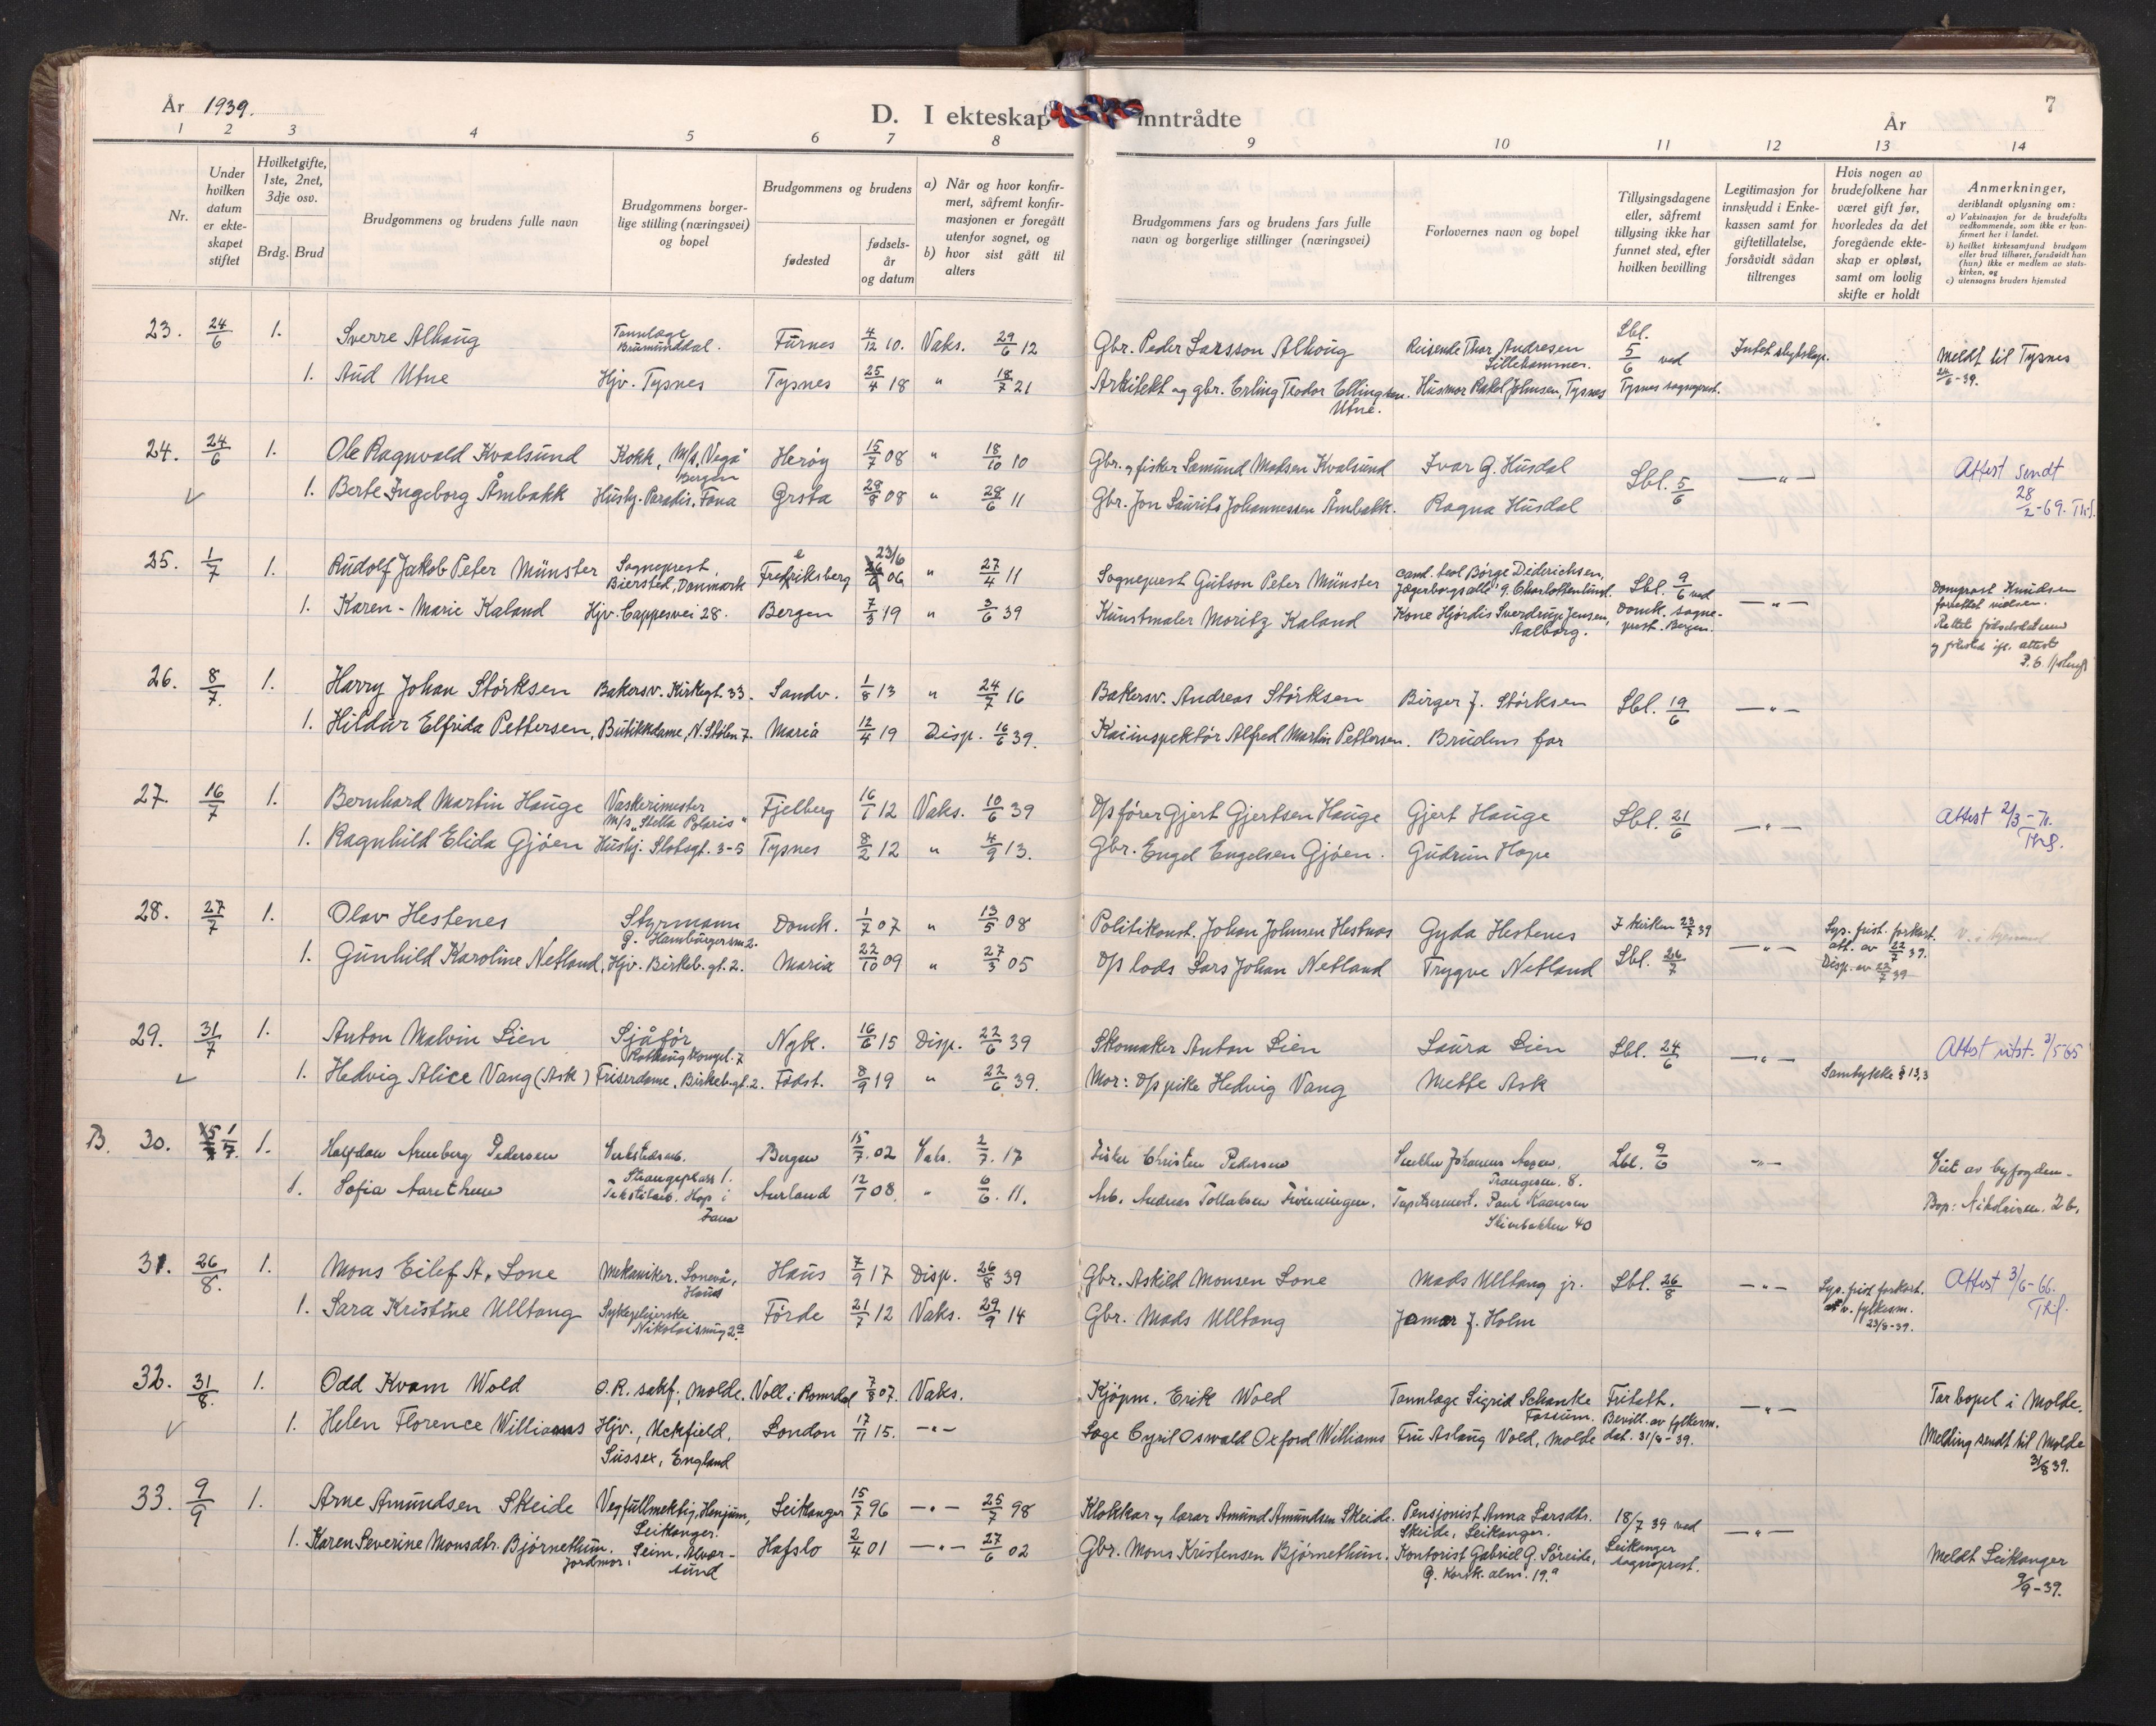 År 1939.
D. I ekteskap inntrådte
År
7
1 2 3 4 5 6 7 8 9 10 11 12 13 14
Nr.
Under hvilken datum er ekteskapet stiftet
Hvilket gifte, 1ste, 2net, 3dje osv.
Brdg. Brud
Brudgommens og brudens fulle navn
Brudgommens borgerlige stilling (næringsvei) og bopel
Brudgommens og brudens
fødested
fødselsår og datum
a) Når og hvor konfirmert, såfremt konfirmasjonen er foregått utenfor sognet, og
b) hvor sist gått til alters
Brudgommens fars og brudens fars fulle navn og borgerlige stillinger (næringsvei)
Forlovernes navn og bopel
Tillysingsdagene eller, såfremt tillysing ikke har funnet sted, efter hvilken bevilling
Legitimasjon for innskudd i Enkekassen samt for giftetillatelse, forsåvidt sådan tiltrenges
Hvis nogen av brudefolkene har været gift før, hvorledes da det foregående ekteskap er opløst, samt om lovlig skifte er holdt
Anmerkninger, deriblandt oplysning om:
a) Vaksinasjon for de brudefolks vedkommende, som ikke er konfirmert her i landet.
b) hvilket kirkesamfund brudgom eller brud tilhører, forsåvidt han (hun) ikke er medlem av statskirken, og
c) utensogns bruders hjemsted
23. 24/6 1. Sverre Alhaug Tannlæge Brumunddal. Furnes 4/12 10. Vaks. 29/6 12 Gbr. Peder Larsson Alhoug Reisende Thor Andresen Lillehammer. Lbl. 5/6 ved Intet slektskap. Meldt til Tysnes 24/6-39.
1. Aud Utne Hjv. Tysnes Tysnes 25/4 18 " 18/7 21 Arkitekt og gbr. Erling Teodor Ellingsen Utne. Husmor Rakel Johnsen, Tysnes Tysnes sogneprest.
24. 24/6 1. Ole Ragnvald Kvalsund Kokk, M/s "Vega" Bergen Herøy 15/7 08 " 18/10 10 Gbr. og fisker Samund Madsen Kvalsund Ivar G. Husdal Lbl. 5/6 —"— Attest sendt 28/2-69.
1. Berte Ingeborg Åmbakk Hushj. Paradis, Fana Grsta 28/8 08 " 28/6 11 Gbr. Jon Laurits Johannessen Åmbakk. Ragna Husdal
25. 1/7 1. Rudolf Jakob Peter Münster Sogneprest, Biersted, Danmark Frederiksberg 23/6 06 " 27/4 11 Sogneprest Gutson Peter Münster cand. teol Børge Diderichsen, Jægerborgsallé 9. Charlottenlund. Lbl. 9/6 ved —"— Domprost Knudsen forrettet vielsen.
1. Karen-Marie Kaland Hjv. Cappesvei 28. Bergen 7/3 19 " 3/6 39 Kunstmaler Moritz Kaland Kone Hjørdis Sverdrup Jensen, Aalborg. Domk. sogneprest. Bergen. Rettet fødselsdatum
26. 8/7. 1. Harry Johan Størksen Bakersv. Kirkegt. 33. Sandv. 1/8 13 " 24/7 16 Bakersv. Andreas Størksen Birger J. Størksen Lbl. 19/6 —"—
1. Hildur Elfrida Pettersen, Butikkdame, N. Stølen 7. Maria 12/4 19 Disp. 16/6 39. Kaiinspektør Alfred Martin Pettersen. Brudens far
27. 16/7 1. Bernhard Martin Hauge Vaskerimester M/s "Stella Polaris" Fjelberg 16/1 12 Vaks. 10/6 39 D/s fører Gjert Gjertsen Hauge Gjert Hauge Lbl. 21/6 —"— Attest 2/3-70.
1. Ragnhild Elida Gjøen Hushj. Slotsgt. 3-5 Tysnes 8/2 12 " 4/9 13. Gbr. Engel Engelsen Gjøen. Gudrun Hope
28. 27/7 1. Olav Hestenes Styrmann G. Hamburgersm 2. Domk. 1/7 07 " 13/5 08 Politikonst. Johan Johnsen Hestnes Gyda Hestenes I kirken 23/7 39 Lys. frist. forkort. att. av 22/7 39.
1. Gunhild Karoline Netland, Hjv. Birkeb. gt. 2. Maria 22/10 09 " 27/3 05 D/s lods Lars Johan Netland Trygve Netland Lbl. 26/7 —"— Disp. av 22/7 39
29. 31/7 1. Anton Malvin Lien Sjåfør Rothaugkongel. 7 Nyk. 16/6 15 Disp. 22/6 39 Skomaker Anton Lien Laura Lien Lbl. 24/6 —"— Attest utst. 3/5 65
1. Hedvig Alice Vang (Ask) Friserdame, Birkeb.gt. 2. Fødst. 8/9 19 " 22/6 39. Mor: D/s pike Hedvig Vang Mette Ask Samtykke § 13,3
B. 30. 1/7. 1. Halfdan Arneberg Pedersen Verkstedsarb. Strangeplass 1. Bergen 15/7. 02 Vaks. 2/7. 17 Fisker Christen Pedersen Lbl. 9/6 —"— Viet av byfogden.
1. Sofia Aarethun Tekstilarb. Hop i Fana Aurland 12/1 08. " 6/6. 11. Arb. Andreas Tollaksen Tapetsermest. Paul Kaarsen Skivebakken 40 Bop: Nikolaism. 26.
31. 26/8. 1. Mons Eilef A. Lone Mekaniker. Lonevå, Haus Haus 7/9 17 Disp. 26/8 39 Gbr. Askild Monsen Lone Mads Ulltang jr. Lbl. 26/8 —"— Lys. frist forkort. av fylkesm. 23/8-39. Attest 3/6-66.
1. Sara Kristine Ulltang Sykepleierske Nikolaismug 2a Førde 21/7 12 Vaks. 29/9 14 Gbr. Mads Ulltang Jomar J. Holm
32. 31/8. 1. Odd Kvam Wold O.R. sakf., Molde. Voll i Romsdal 7/8 07. Vaks. Kjøpm. Erik Wold Tannlæge Sigrid Schanke Fossum. Fritatt. —"— Tar bopel i Molde.
1. Helen Florence Williams Hjv., Uckfield, Sussex, England London 17/11 15. —"— Læge Cyril Oswald Oxford Williams Fru Aslaug Vold, Molde Bevill. av fylkesm. dat. 31/8-39. Melding sendt til Molde 31/8 39.
33. 9/9 1. Arne Amundsen Skeide Vegfullmektig, Henjum, Leikanger. Leikanger 15/7 96 —"— 25/7 98 Klokkar og lærar Amund Amundsen Skeide. Pensjonist Anna Larsdtr. Skeide, Leikanger. 18/7 39 ved —"—
1. Karen Severine Monsdtr. Bjørnethun. Jordmor, Seim, Alversund Hafslo 2/4 01 —"— 27/6 02 Gbr. Mons Kristensen Bjørnethun. Kontorist Gabriel G. Søreide, G. Kortk. alm. 19a Leikanger sogneprest. Meldt Leikanger 9/9-39.